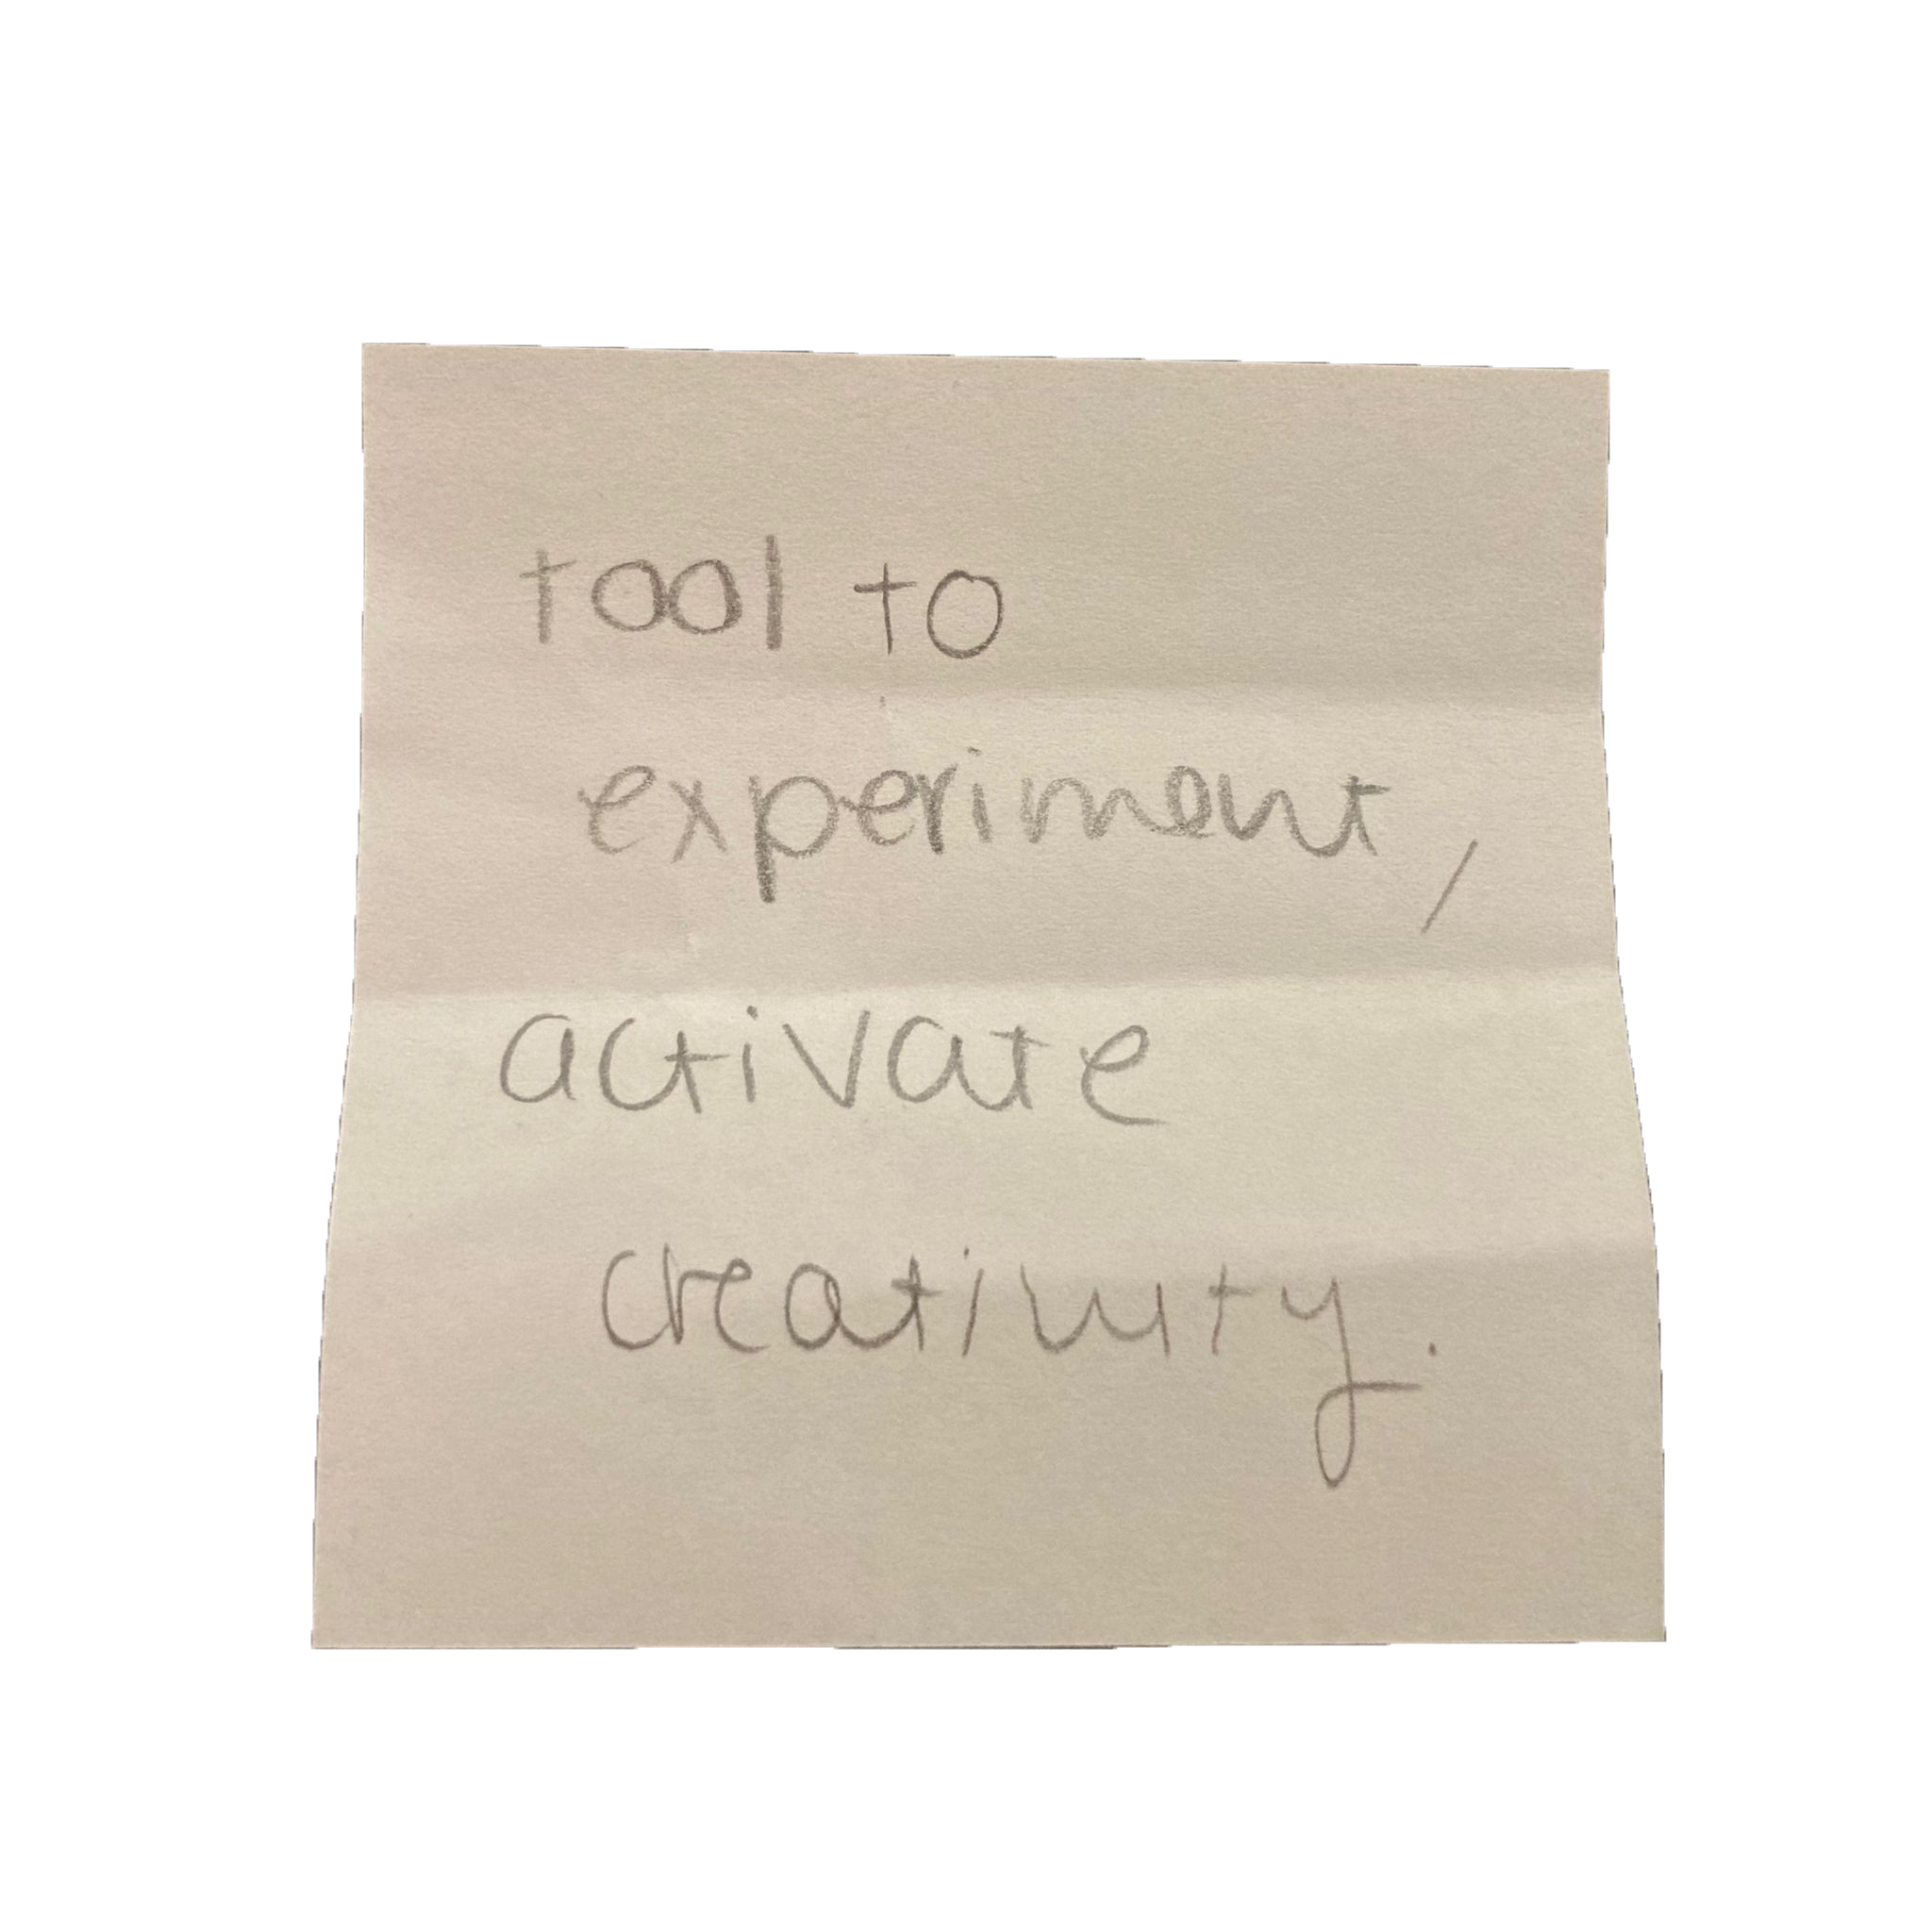 tool to
experiment,
activate
creativity.